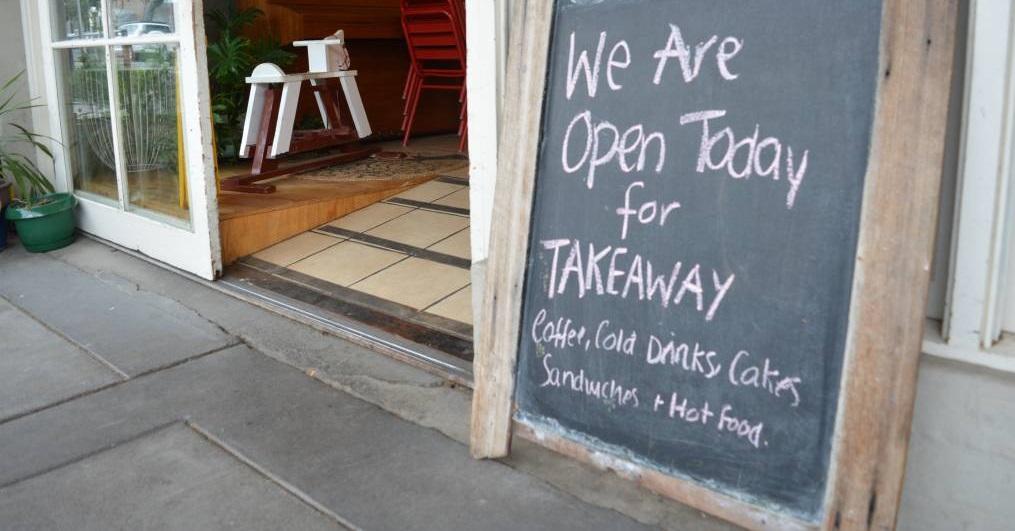 We Are
Open Today
for
TAKEAWAY
Coffee, Cold Drinks, Cakes
Sandwiches + Hot Food.